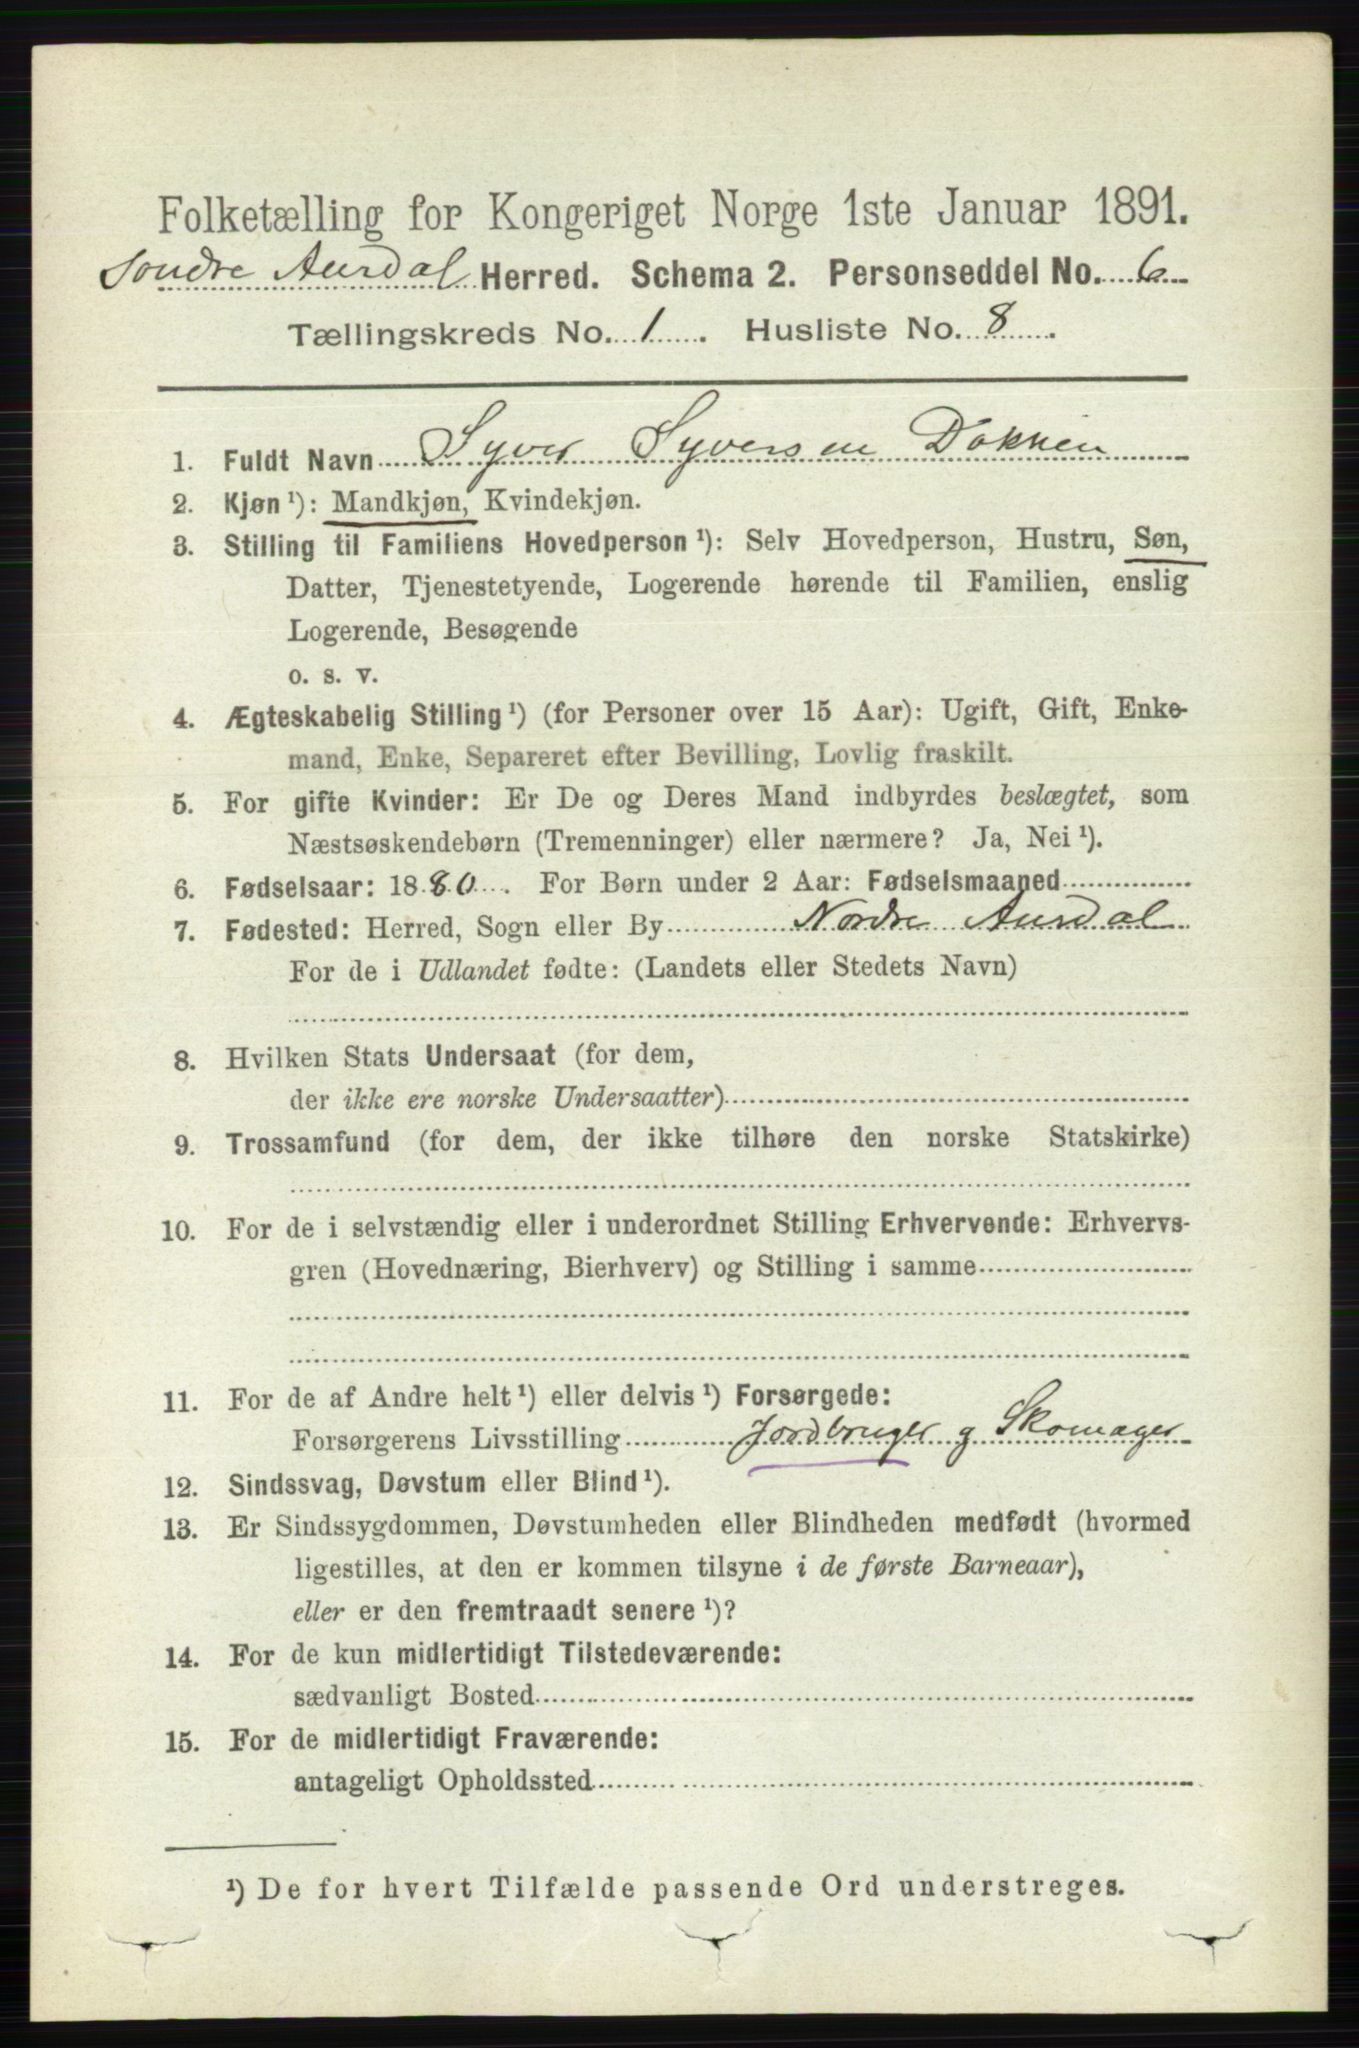 Folketælling for Kongeriget Norge 1ste Januar 1891.
Søndre Aurdal Herred. Schema 2. Personseddel No. 6
Tællingskreds No. 1. Husliste No. 8.
1. Fuldt Navn Syver Syversen Dokken
2. Kjøn ¹): Mandkjøn, Kvindekjøn.
3. Stilling til Familiens Hovedperson ¹): Selv Hovedperson, Hustru, Søn,
Datter, Tjenestetyende, Logerende hørende til Familien, enslig
Logerende, Besøgende
o. s. v.
4. Ægteskabelig Stilling ¹) (for Personer over 15 Aar): Ugift, Gift, Enke-
mand, Enke, Separeret efter Bevilling, Lovlig fraskilt.
5. For gifte Kvinder: Er De og Deres Mand indbyrdes beslægtet, som
Næstsøskendebørn (Tremenninger) eller nærmere? Ja, Nei ¹).
6. Fødselsaar: 1880. For Børn under 2 Aar: Fødselsmaaned
7. Fødested: Herred, Sogn eller By Nordre Aurdal
For de i Udlandet fødte: (Landets eller Stedets Navn)
8. Hvilken Stats Undersaat (for dem,
der ikke ere norske Undersaatter)
9. Trossamfund (for dem, der ikke tilhøre den norske Statskirke)
10. For de i selvstændig eller i underordnet Stilling Erhvervende: Erhvervs-
gren (Hovednæring, Bierhverv) og Stilling i samme
11. For de af Andre helt ¹) eller delvis ¹) Forsørgede:
Forsørgerens Livsstilling Jordbruger g Skomager
12. Sindssvag, Døvstum eller Blind ¹).
13. Er Sindssygdommen, Døvstumheden eller Blindheden medfødt (hvormed
ligestilles, at den er kommen tilsyne i de første Barneaar),
eller er den fremtraadt senere ¹)?
14. For de kun midlertidigt Tilstedeværende:
sædvanligt Bosted
15. For de midlertidigt Fraværende:
antageligt Opholdssted
¹) De for hvert Tilfælde passende Ord understreges.